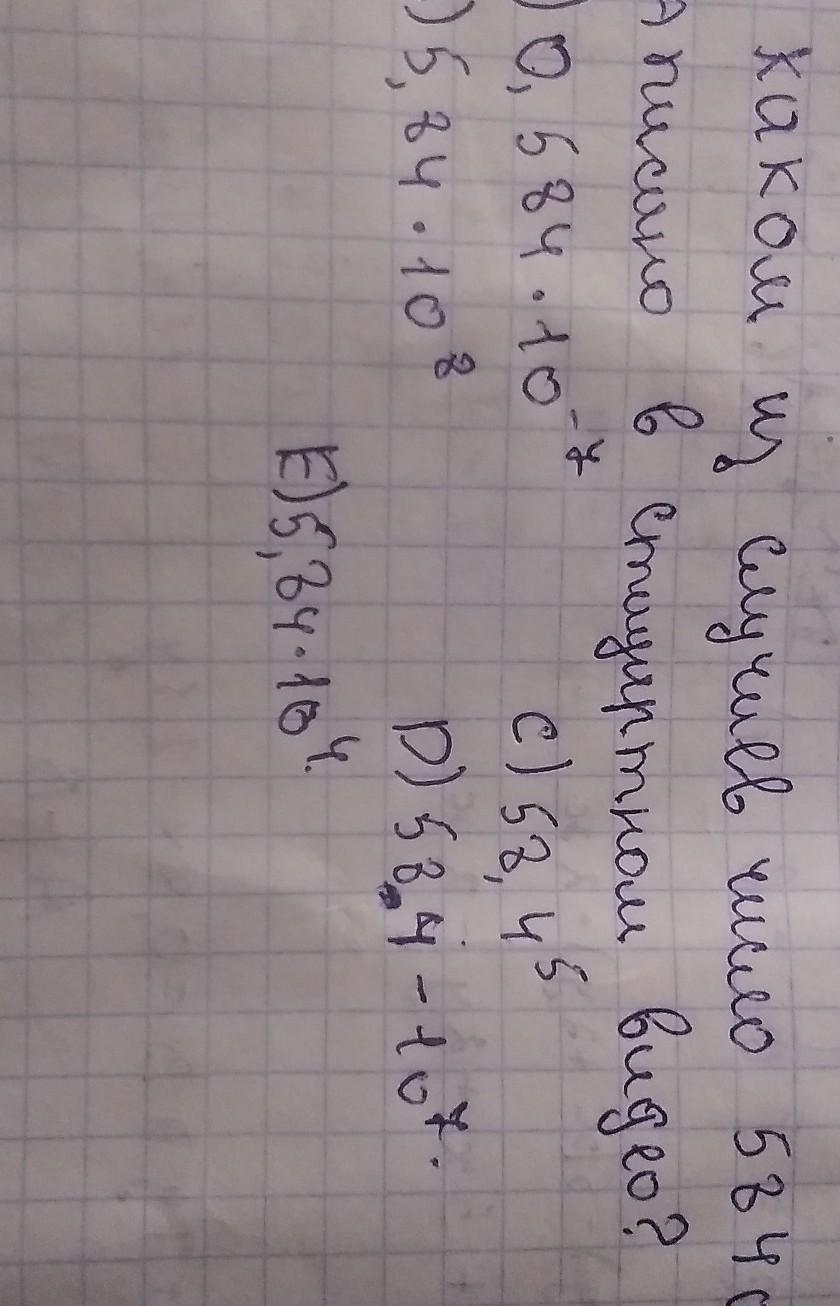 каком из случаев число 5840
аписано в стандартном видео?
) 0, 584 · 10⁻⁷ C) 58, 4⁵
) 5, 84 · 10⁸ D) 58,4 - 10⁷.
E) 5,84 · 10⁴.